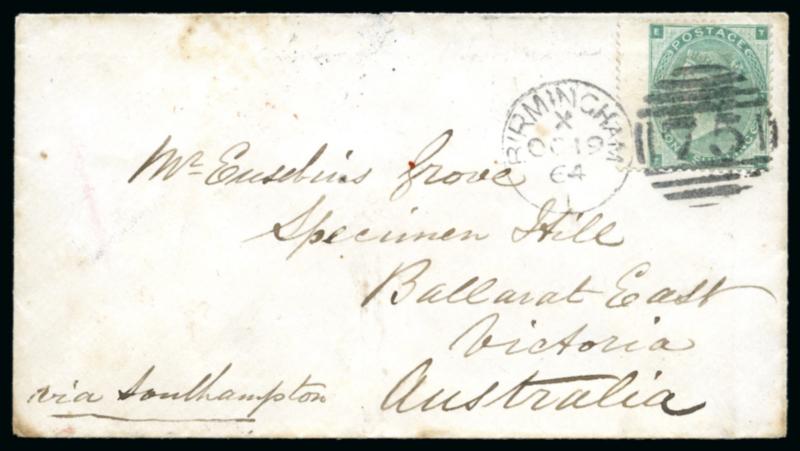 E Y
POSTAGE
BIRMINGHAM
X
OC 19
64
75
Mr Eusebius Grove
Specimen Hill
Ballarat East
Victoria
Australia
via Southampton